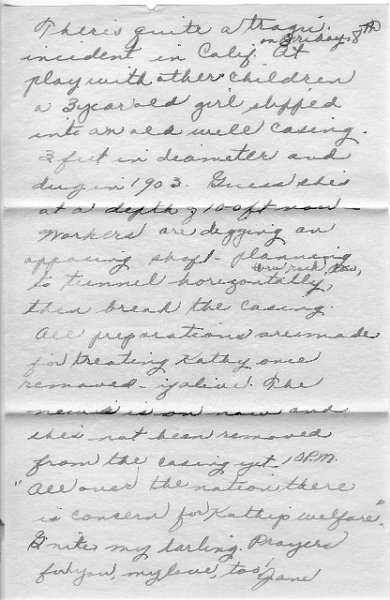 There's quite a tragic
on Friday, 8TH
incident in Calif. At
play with other children
a 3 year old girl slipped
into an old well casing -
3 feet in diameter and
dug in 1903. Guess she's
at a depth of 100 ft now -
Workers are digging an
opposing shaft - planning
to tunnel horizontally,
then break the casing.
All preparations are made
for treating Kathy once
removed - if alive. The
news is on now and
she's not been removed
from the casing yet, 10 P.M.
"All over the nation there
is concern for Kathy's welfare",
G'nite, my darling. Prayers
for you, my love, too, Jane